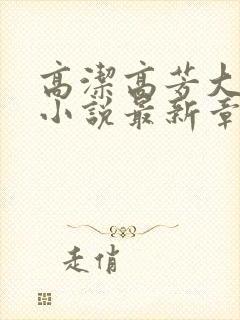 高潔高芳大
小說最新章
走俏